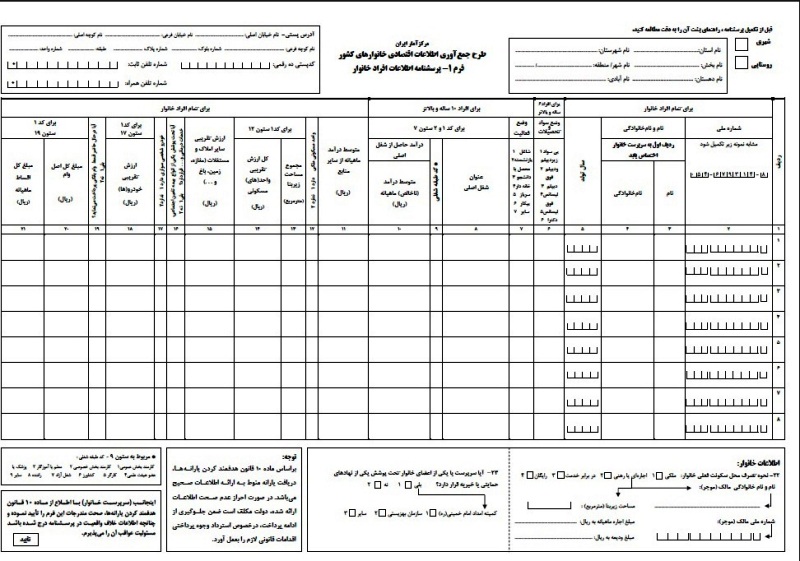 قبل از تکمیل پرسشنامه، راهنمای پشت آن را به دقت مطالعه کنید.
شهری
روستایی
نام استان:
نام شهرستان:
نام بخش:
نام شهر/ منطقه:
نام دهستان:
نام آبادی:
مرکز آمار ایران
طرح جمع‌آوری اطلاعات اقتصادی خانوارهای کشور
فرم ۱- پرسشنامه اطلاعات افراد خانوار
آدرس پستی:- نام خیابان اصلی:
نام خیابان فرعی:
نام کوچه اصلی:
نام کوچه فرعی:
شماره بلوک:
شماره پلاک:
طبقه:
شماره واحد:
کدپستی ده رقمی:
شماره تلفن ثابت:
شماره تلفن همراه:
برای تمام افراد خانوار
برای افراد ۶ ساله و بالاتر
برای افراد ۱۰ ساله و بالاتر
برای تمام افراد خانوار
ردیف
شماره ملی
مشابه نمونه زیر تکمیل شود
نام و نام‌خانوادگی
ردیف اول به سرپرست خانوار اختصاص یابد
نام
نام‌خانوادگی
سال تولد
وضع سواد
تحصیلات
وضع فعالیت
برای کد ۱ و ۲ ستون ۷
عنوان شغل اصلی
* کد طبقه شغلی
درآمد حاصل از شغل اصلی
متوسط درآمد (ناخالص) ماهیانه
(ریال)
متوسط درآمد ماهیانه از سایر منابع
(ریال)
برای کد۱ ستون ۱۲
مجموع مساحت زیربنا
(مترمربع)
کل ارزش تقریبی واحد(های) مسکونی
(ریال)
ارزش تقریبی سایر املاک و مستغلات (مغازه، زمین، باغ و ...)
(ریال)
برای کد۱ ستون ۱۷
ارزش تقریبی خودرو(ها)
(ریال)
برای کد ۱ ستون ۱۹
مبلغ کل اصل وام
(ریال)
مبلغ کل اقساط ماهیانه
(ریال)
۱ ۲ ۳ ۴ ۵ ۶ ۷ ۸ ۹ ۱۰ ۱۱ ۱۲ ۱۳ ۱۴ ۱۵ ۱۶ ۱۷ ۱۸ ۱۹ ۲۰ ۲۱
۱
۲
۳
۴
۵
۶
۷
۸
اطلاعات خانوار:
۲۲- نحوه تصرف محل سکونت فعلی خانوار: ملکی ۱ اجاره‌ای یا رهنی ۲ در برابر خدمت ۳ رایگان ۴
نام و نام خانوادگی مالک (موجر):
مساحت زیربنا (مترمربع):
شماره ملی مالک (موجر):
مبلغ اجاره ماهیانه به ریال:
مبلغ ودیعه به ریال:
۲۳- آیا سرپرست یا یکی از اعضای خانوار تحت پوشش یکی از نهادهای
حمایتی یا خیریه قرار دارد؟ بلی ۱ نه ۲
کمیته امداد امام خمینی(ره) ۱ سازمان بهزیستی ۲ سایر ۳
توجه:
براساس ماده ۱۰ قانون هدفمند کردن یارانه‌ها،
دریافت یارانه منوط به ارائه اطلاعات صحیح
می‌باشد. در صورت احراز عدم صحت اطلاعات
ارائه شده، دولت مکلف است ضمن جلوگیری از
ادامه پرداخت، درخصوص استرداد وجوه پرداختی
اقدامات قانونی لازم را بعمل آورد.
* مربوط به ستون ۹ - کد طبقه شغلی:
اینجانب (سرپرست خانوار) با اطلاع از ماده ۱۰ قانون
هدفمند کردن یارانه‌ها، صحت مندرجات این فرم را تأیید نموده و
چنانچه اطلاعات خلاف واقعیت در پرسشنامه درج شده باشد
مسئولیت عواقب آن را می‌پذیرم.
تایید